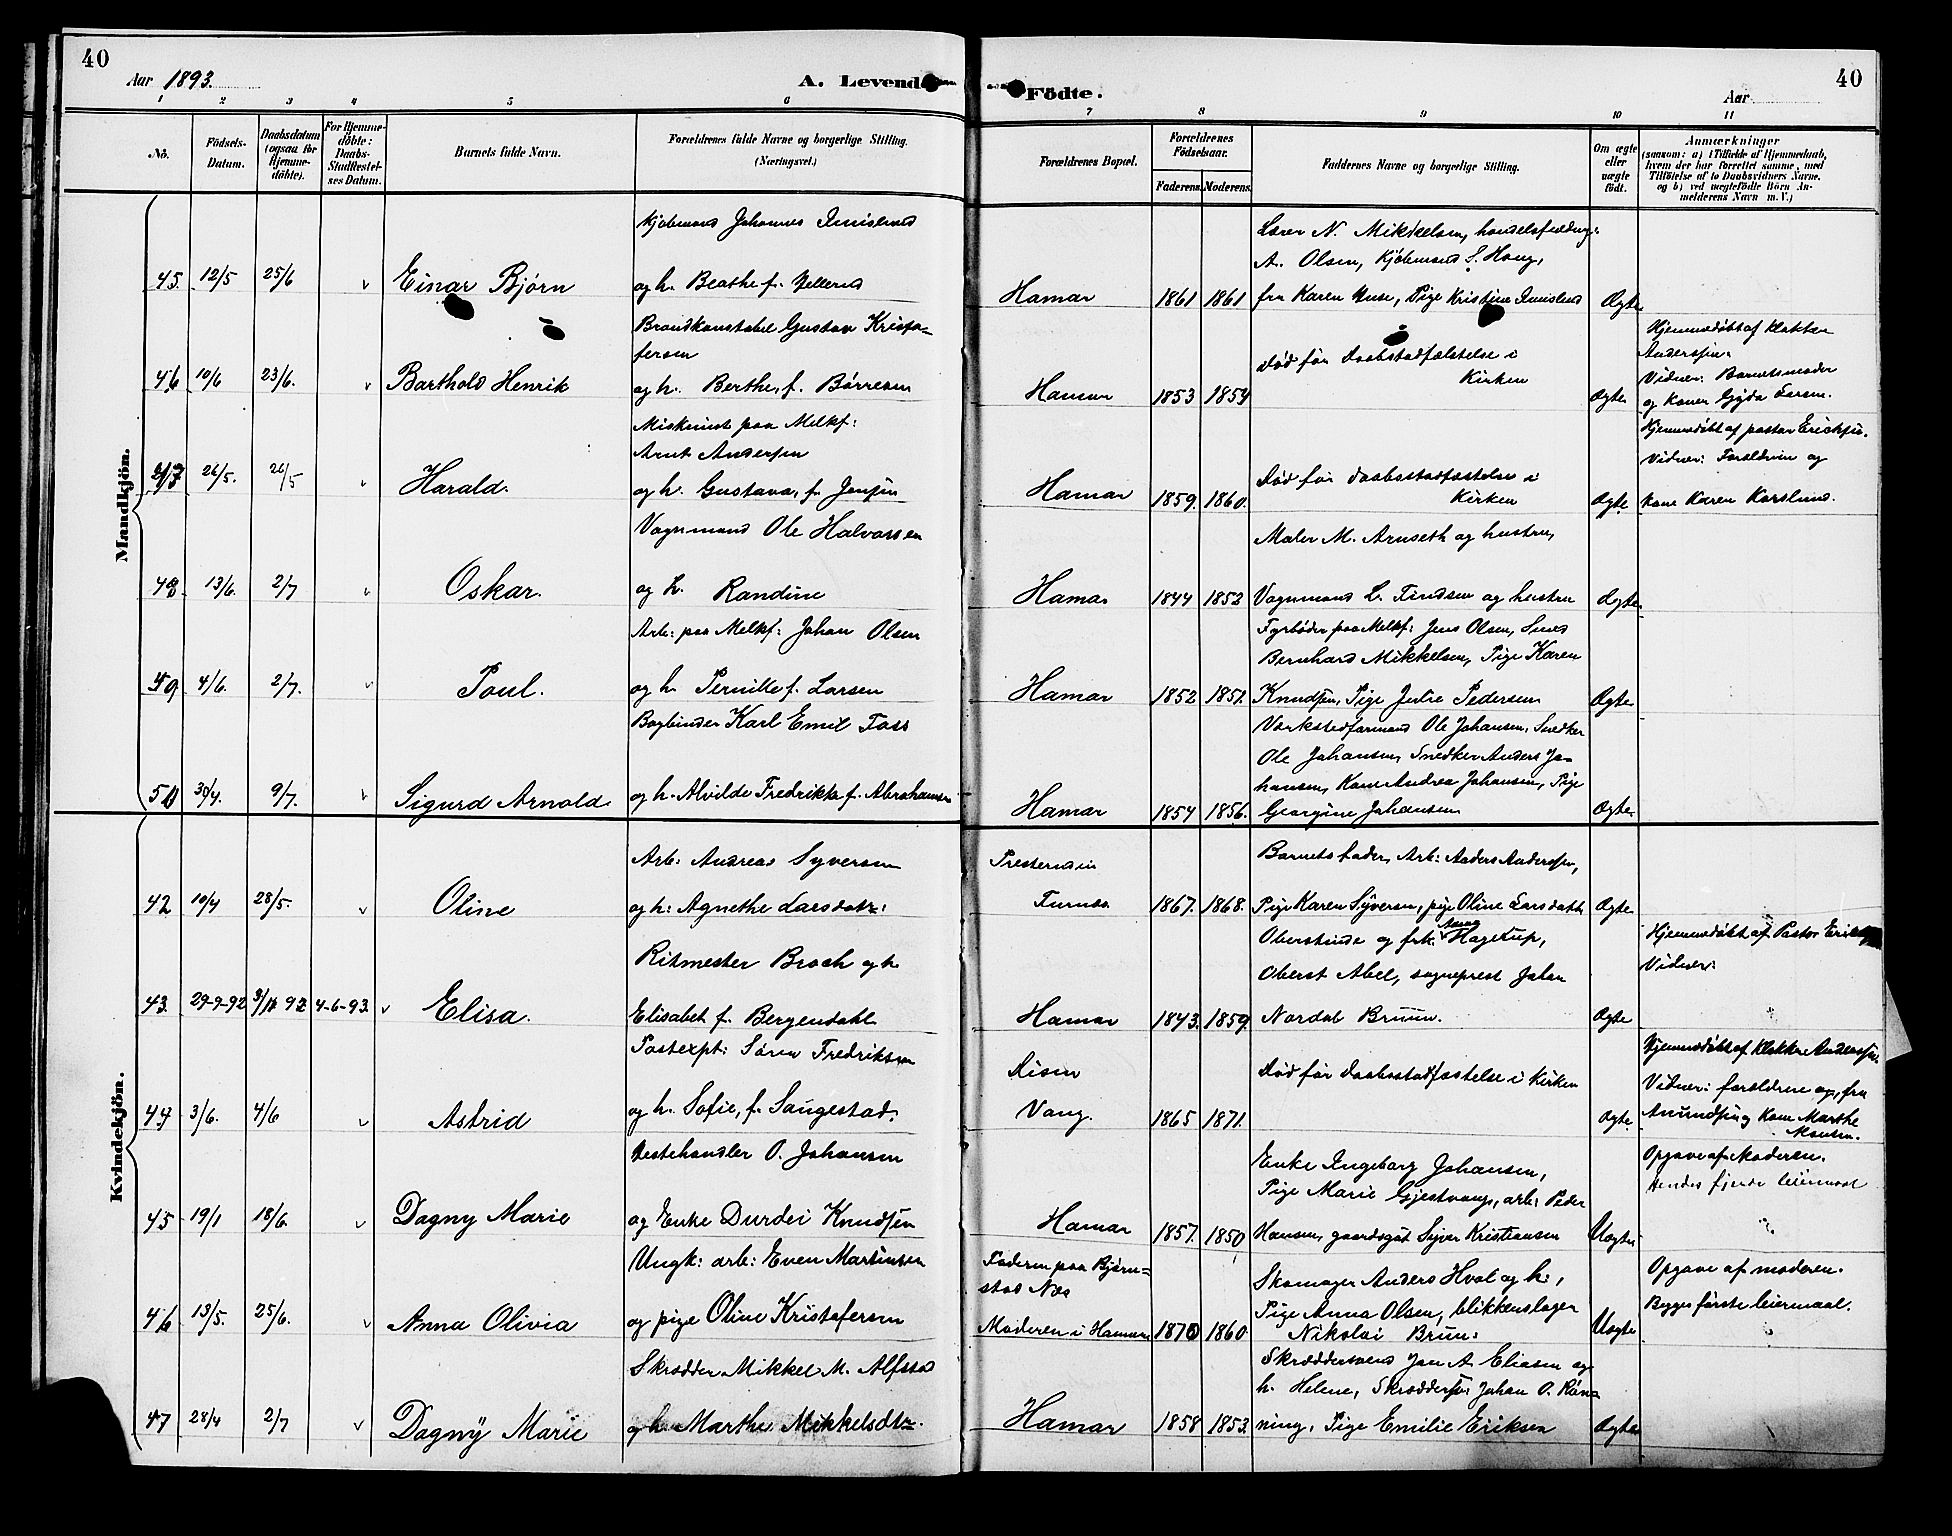 40
Aar 1893.
A. Levend
Födte.
Aar
40
1 2 3 4 5 6 7 8 9 10 11
No.
Födsels-Datum.
Daabsdatum (ogsaa for Hjemme-döbte).
For Hjemme-döbte: Daabs-Stadfæstel-ses Datum.
Barnets fulde Navn.
Forældrenes fulde Navne og borgerlige Stilling. (Næringsvei.)
Forældrenes Bopæl.
Forældrenes Födselsaar.
Faderens. Moderens.
Faddernes Navne og borgerlige Stilling.
Om ægte eller uægte födt.
Anmærkninger (saasom: a) i Tilfælde af Hjemmedaab, hvem der har forrettet samme, med Tilföielse af to Daabsvidners Navne, og b) ved uægtefödte Börn An-melderens Navn m. V.)
Mandkjön.
Kjøbmand Johannes
45. 12/5 25/6 v Einar Bjørn
og h. Beathe f.
Hamar 1861 1861
Lærer N. Mikkelsen,
A. Olsen, Kjøbmand S. Haug,
fru Karen Huse, Pige Kristine
Ægte
Brandkonstabel Gustav Kristo-
fersen
46 10/6 23/6. v Barthold Henrik
og h. Berthe, f. Børresen
Hamar 1853 1854
død før Daabstadfæstelse i
Kirken
Ægte
Hjemmedøbt af klokker
Anderssen.
Vidner: Barnets moder
og Konen Gyda Larsen.
paa Melkf:
Arnt Andersen
47 26/5. 26/5 v Harald.
og h. Gustava, f. Jensen
Hamar 1859. 1860.
Død før daabsstadfæstelse i
Kirken
Ægte
Hjemmedøbt af pastor Ericksen.
Vidner: Forældrene og
kone Karen Karslund.
Vognmand Ole Halvorsen
48. 13/6. 2/7 v Oskar.
og h. Randine
Hamar 1844 1852
Maler M. Arnseth og hustru,
Vognmand L. Findsen og hustru
Ægte
Arb: paa Melkf: Johan Olsen
49 4/6. 2/7. v Poul.
og h. Pernille f. Larsen
Hamar 1852 1851.
Fyrbøder paa Melkf: Jens Olsen, Smed
Bernhard Mikkelsen, Pige Karen
Knudsen, Pige Julie Pedersen
Ægte
Bogbinder Karl Emil Foss
50 30/4. 9/7. v Sigurd Arnold.
og h. Alvilde Fredrikke f. Abrahamsen
Hamar 1854 1856.
Værkstedformand Ole Johansen, Snedker
Ole Johansen, Snedker Anders Jo-
hansen, Kone Andrea Johansen, Pige
Georgine Johansen
Ægte
Kvindekjön.
Arb: Andreas Syversen
42 10/4 28/5. v Oline
og h: Agnethe Larsdatr:
Furnes 1867. 1868.
Barnets fader, Arb: Anders Anderssen,
Pige Karen Syversen, pige Oline Larsdatter
Ægte
Ritmester Broch og h
43. 29-9-92 4-6-93. v Elisa.
Elisabet f. Bergendahl
Hamar 1843. 1859.
Oberstinde og frk. Anna Hagerup,
Oberst Abel, sogneprest Johan
Nordal Bruun.
Ægte
Hjemmedøbt af Pastor
Vidner:
Postexpt: Søren Fredriksen
44 3/6. 4/6 v Astrid
og h. Sofie, f. Saugestad.
Disen
Vang. 1865 1871.
Død før daabsstadfæstelse i Kirken
Ægte
Hjemmedøbt af klokker Anderssen.
Vidner: forældrene og, fru
Amundsen og Kone Marthe
Hestehandler O. Johansen
45 19/1 18/6 v Dagny Marie
og Enke Durdei Knudsen
Hamar 1857. 1850
Enke Ingeborg Johansen,
Pige Marie Gjestvang, arb: Peder
Hansen, gaardsgut Syver Kristiansen
Uægte
Opgave af Moderen.
Hendes fjerde leiermaal
Ungk: arb: Even Martinsen
46 13/5. 25/6. v Anna Olivia
og pige Oline Kristofersen
Faderen paa Bjørn=
stad Næs
Moderen i Hamar 1870 1860
Skomager Anders Hval og h:,
Pige Anna Olsen, blikkenslager
Nikolai Brun:
Uægte
Opgave af moderen.
Begges første leiermaal.
Skrædder Mikkel M. Alfstad
47 28/4 2/7 v Dagny Marie
og h Marthe Mikkelsdtr.
Hamar 1858 1853.
Skræddersvend Jon A. Eliasen og
h. Helene, Skræddersv. Johan O. Røn-
ning, Pige Emilie Eriksen
Ægte